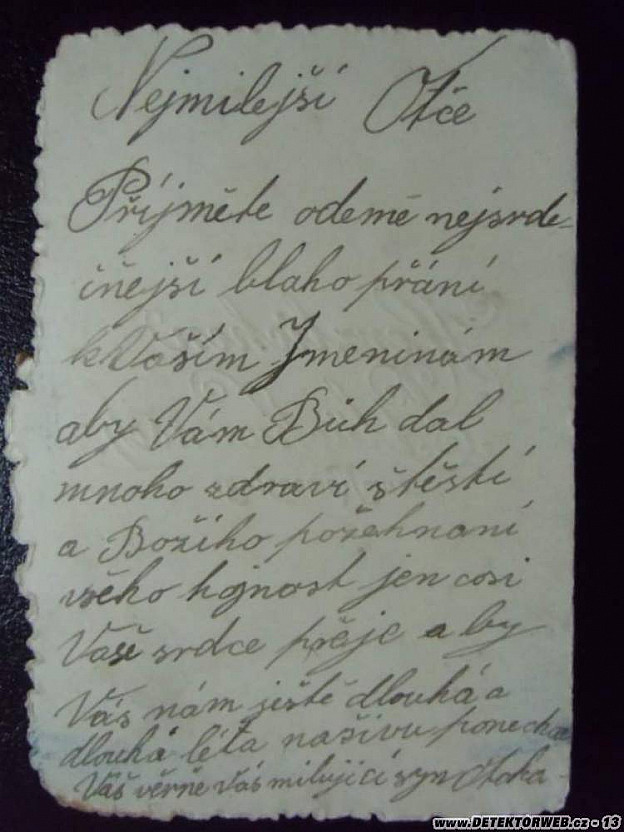 Nejmilejší Otče
Příjměte odemě nejsrde-
čňejší blaho přání
k Vaším Jmeninám
aby Vám Bůh dal
mnoho zdraví štěstí
a Božího požehnaní
všeho hojnost jen cosi
Vaše srdce přeje a by
Vás nám ještě dlouhá a
dlouhá léta naživu ponecha
Váš věrně Vás milující syn
www.DETEKTORWEB.cz - 13